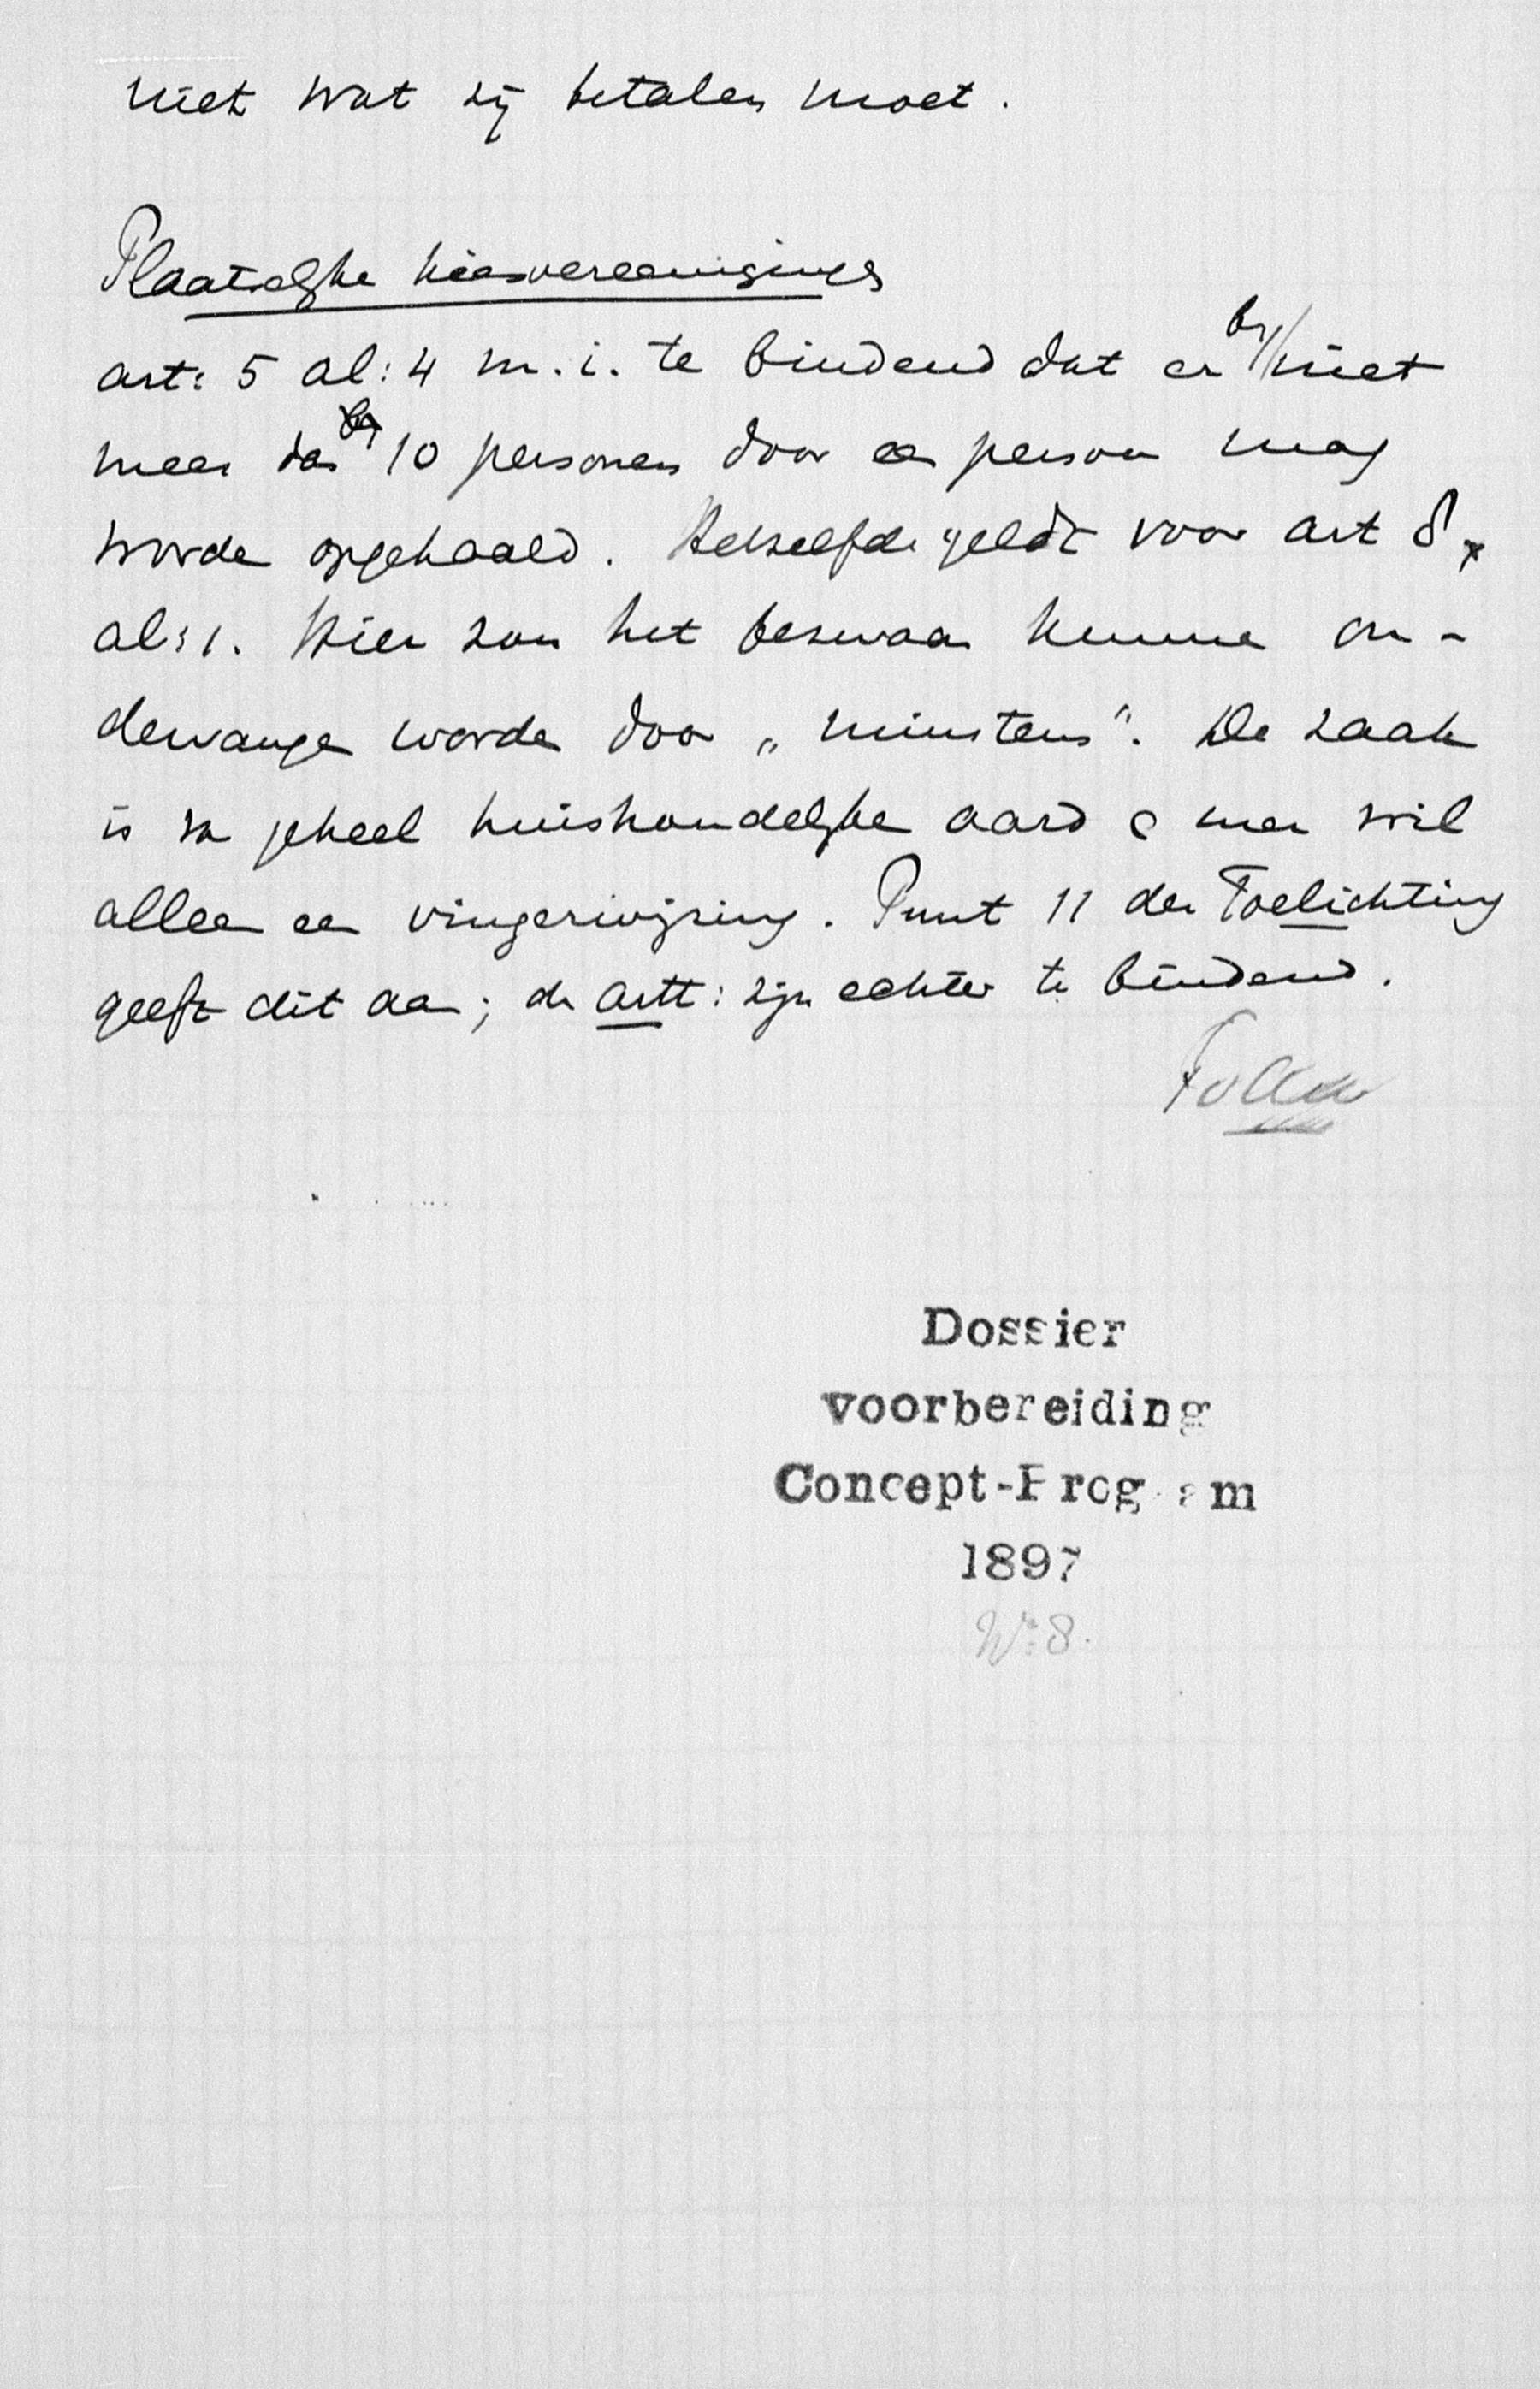 niet wat zij betalen moet.
Plaatselijke kiesvereenigingen
art: 5 al: 4 m.i. te bindend dat er bij niet
meer dan 10 personen door een persoon mag
worden opgehaald. Hetzelfde geldt voor art 8
al: 1. Hier zou het bezwaar kunnen on-
dervangen worden door „minstens". De zaak
is van geheel huishoudelijke aard & men wil
alleen een vingerwijzing. Punt 11 der Toelichting
geeft dit aan; de artt: zijn echter te bindend.
Dossier
voorbereiding
Concept-Program
1897
No: 8.